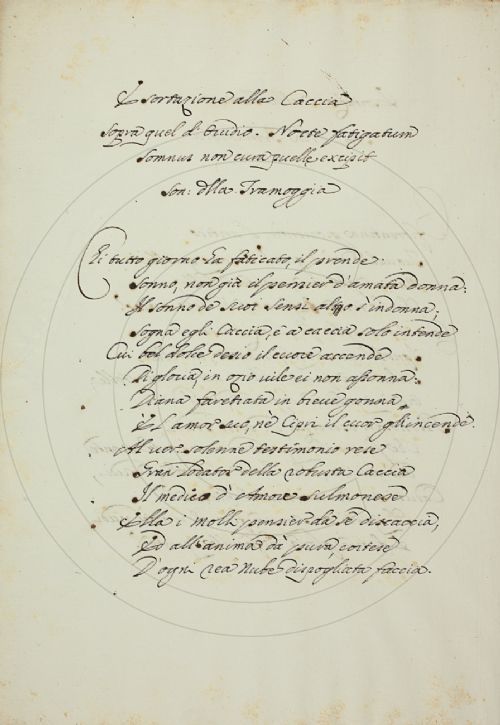 Esortazione alla Caccia
sopra quel d'Ovidio. Nocte fatigatum
somnus non cura puellę excipit
son: dlla Tramoggia
Chi tutto giorno ha faticato, il prende
Sonno, non già il pensier d'amata donna;
Il sonno de suoi sensi altro s'indonna;
Sogna egli Caccia, e a caccia solo intende
Cui bel dolce desio il cuore accende
Di gloria, in ozio vile ei non assonna:
Diana faretrata in breve gonna
È l'amor suo, nè Cipri il cuor gli incende.
Al ver solenne testimonio rese
Gran lodator della robusta Caccia
Il medico d'Amore sulmonese
Ella i molli pensier da sè discaccia,
Ed all'anima dà pura, cortese
D'ogni rea Nube dispogliata faccia.